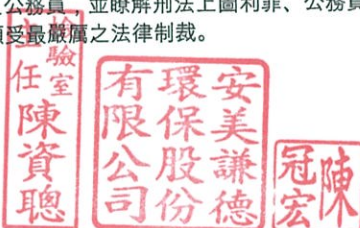 公務員，並瞭解刑法上圖利罪、公務員
受最嚴厲之法律制裁。
檢驗室
主任 陳資聰
安美謙德
環保股份
有限公司
陳冠宏